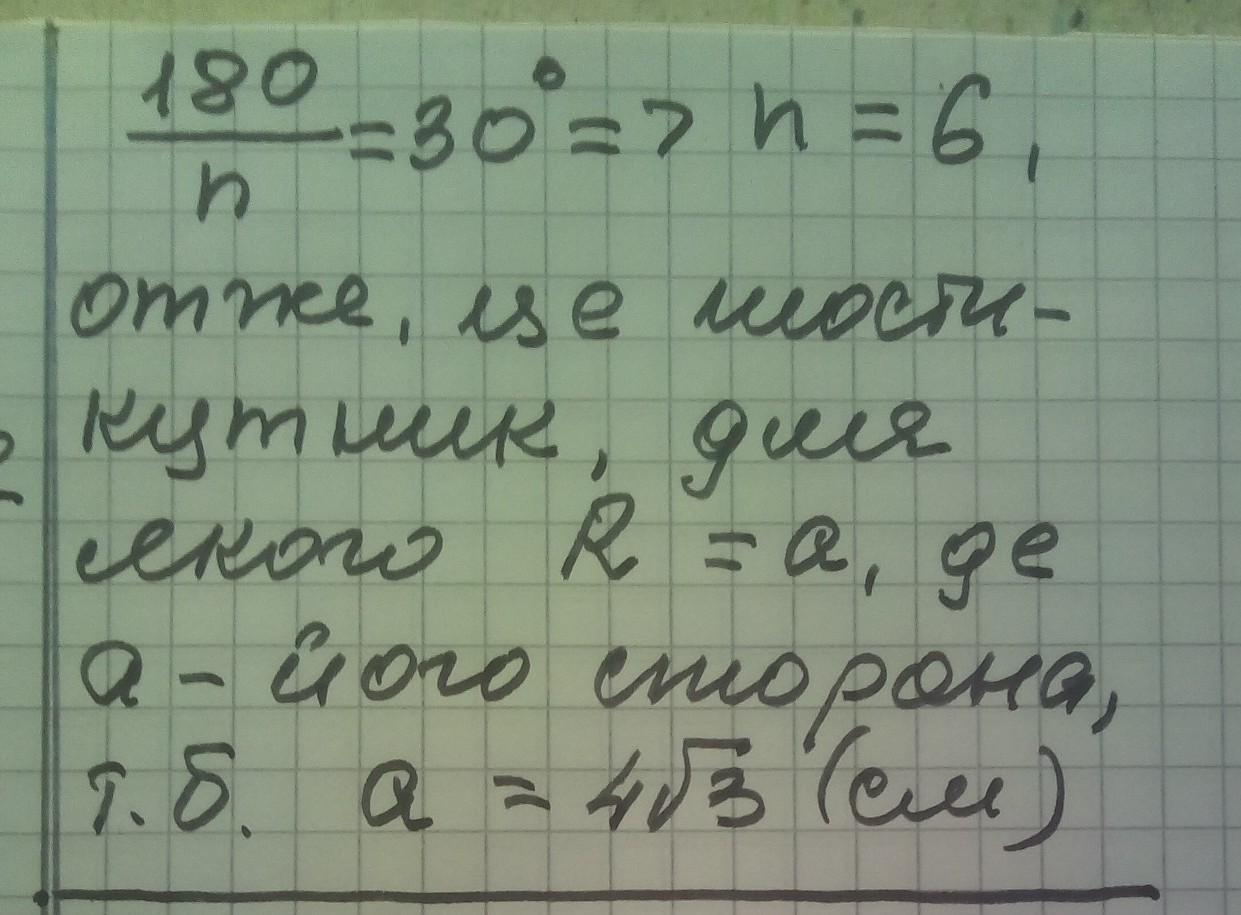 180/n = 30° => n = 6,
отже, це шести-
кутник, для
якого R = a, де
a - його сторона,
т.б. a = 4√3 (см)